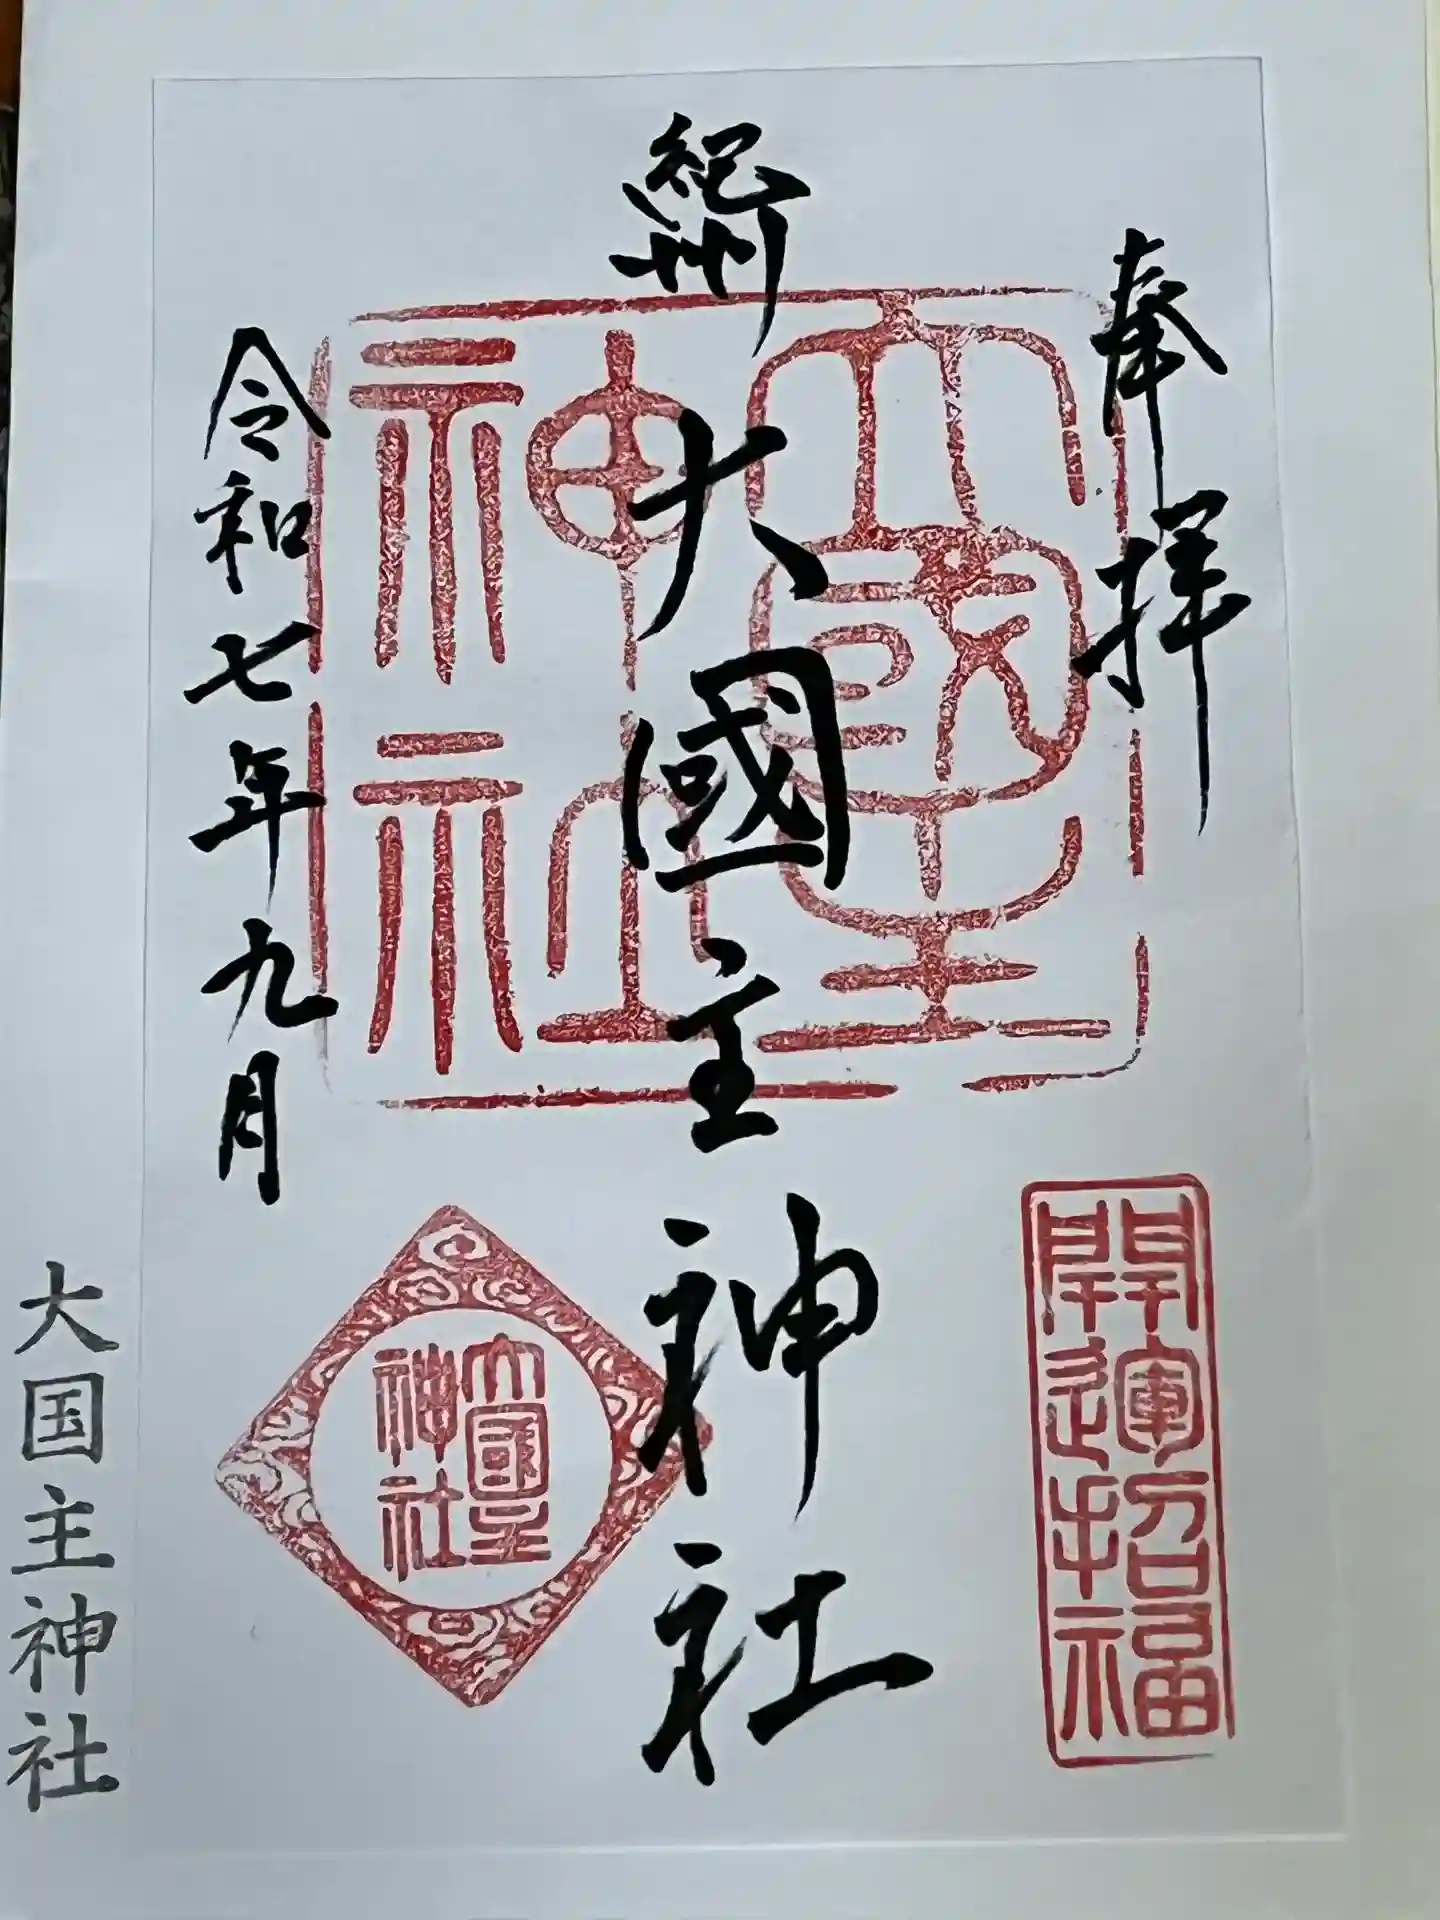 奉拝
開運招福
紀州
大國主神社
大國主神社
令和七年九月
大國主神社
大国主神社